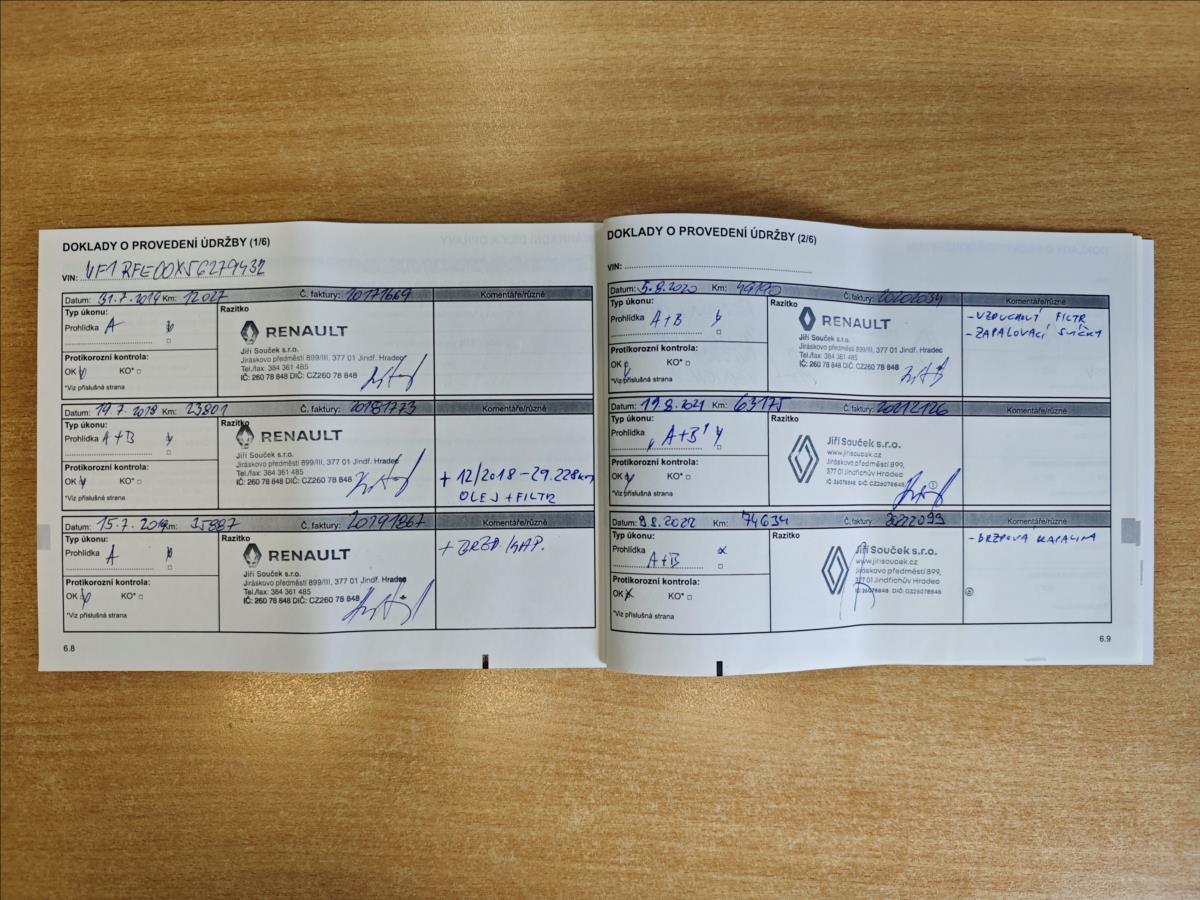 DOKLADY O PROVEDENÍ ÚDRŽBY (1/6)
VIN: VF1RFE00X56279432
Datum: 31.7.2017 Km: 12027 Č. faktury: 20171669 Komentáře/různé
Typ úkonu: Razítko
Prohlídka A
RENAULT
Jiří Souček s.r.o.
Jiráskovo předměstí 899/III, 377 01 Jindř. Hradec
Tel./fax: 384 361 485
IČ: 260 78 848 DIČ: CZ260 78 848
Protikorozní kontrola:
OK KO*
*Viz příslušná strana
Datum: 19.7.2018 Km: 23801 Č. faktury: 20181773 Komentáře/různé
Typ úkonu: Razítko
Prohlídka A+B
RENAULT
Jiří Souček s.r.o.
Jiráskovo předměstí 899/III, 377 01 Jindř. Hradec
Tel./fax: 384 361 485
IČ: 260 78 848 DIČ: CZ260 78 848
Protikorozní kontrola:
OK KO*
*Viz příslušná strana
+ 12/2018 - 29.228km
OLEJ + FILTR
Datum: 15.7.2019 35887 Č. faktury: 20191867 Komentáře/různé
Typ úkonu: Razítko
Prohlídka A
RENAULT
Jiří Souček s.r.o.
Jiráskovo předměstí 899/III, 377 01 Jindř. Hradec
Tel./fax: 384 361 485
IČ: 260 78 848 DIČ: CZ260 78 848
Protikorozní kontrola:
OK KO*
*Viz příslušná strana
+ BRZD. KAP.
6.8
DOKLADY O PROVEDENÍ ÚDRŽBY (2/6)
VIN:
Datum: 5.8.2020 Km: 49190 Č. faktury: 20202034 Komentáře/různé
Typ úkonu: Razítko
Prohlídka A+B
RENAULT
Jiří Souček s.r.o.
Jiráskovo předměstí 899/III, 377 01 Jindř. Hradec
Tel./fax: 384 361 485
IČ: 260 78 848 DIČ: CZ260 78 848
Protikorozní kontrola:
OK KO*
*Viz příslušná strana
- VZDUCHOVÝ FILTR
- ZAPALOVACÍ SVÍČKY
Datum: 19.8.2021 Km: 63175 Č. faktury: 20212126 Komentáře/různé
Typ úkonu: Razítko
Prohlídka A+B
Jiří Souček s.r.o.
www.jirisoucek.cz
Jiráskovo předměstí 899,
377 01 Jindřichův Hradec
IČ: 26078848 DIČ: CZ26078848
Protikorozní kontrola:
OK KO*
*Viz příslušná strana
Datum: 9.8.2022 Km: 74634 Č. faktury: 2022099 Komentáře/různé
Typ úkonu: Razítko
Prohlídka A+B
Jiří Souček s.r.o.
www.jirisoucek.cz
Jiráskovo předměstí 899,
377 01 Jindřichův Hradec
IČ: 26078848 DIČ: CZ26078848
Protikorozní kontrola:
OK KO*
*Viz příslušná strana
- BRZDOVÁ KAPALINA
6.9